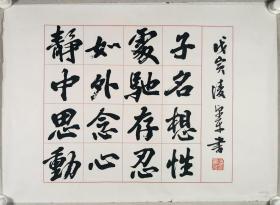 靜如處子
中外馳名
思念存想
動心忍性
戊寅凌書